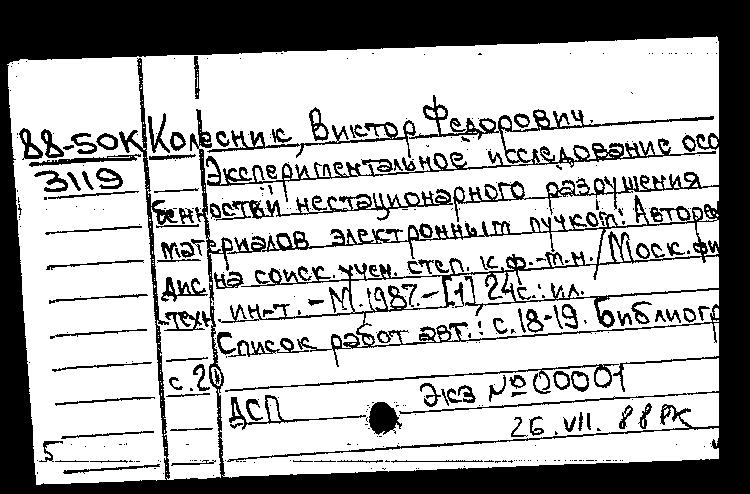 88-50К Колесник, Виктор Федорович.
3119 Экспериментальное исследование осо
бенностей нестационарного разрушения
материалов электронным пучком: Авторе
дис. на соиск. учен. степ. к.ф.-т.н. / Моск. фи
-техн. ин-т. - М. 1987. - [1] 24с.: ил.
Список работ авт.: с.18-19. Библиогр
с.20
ДСП Экз № 00001
26.VII.88 РК
5